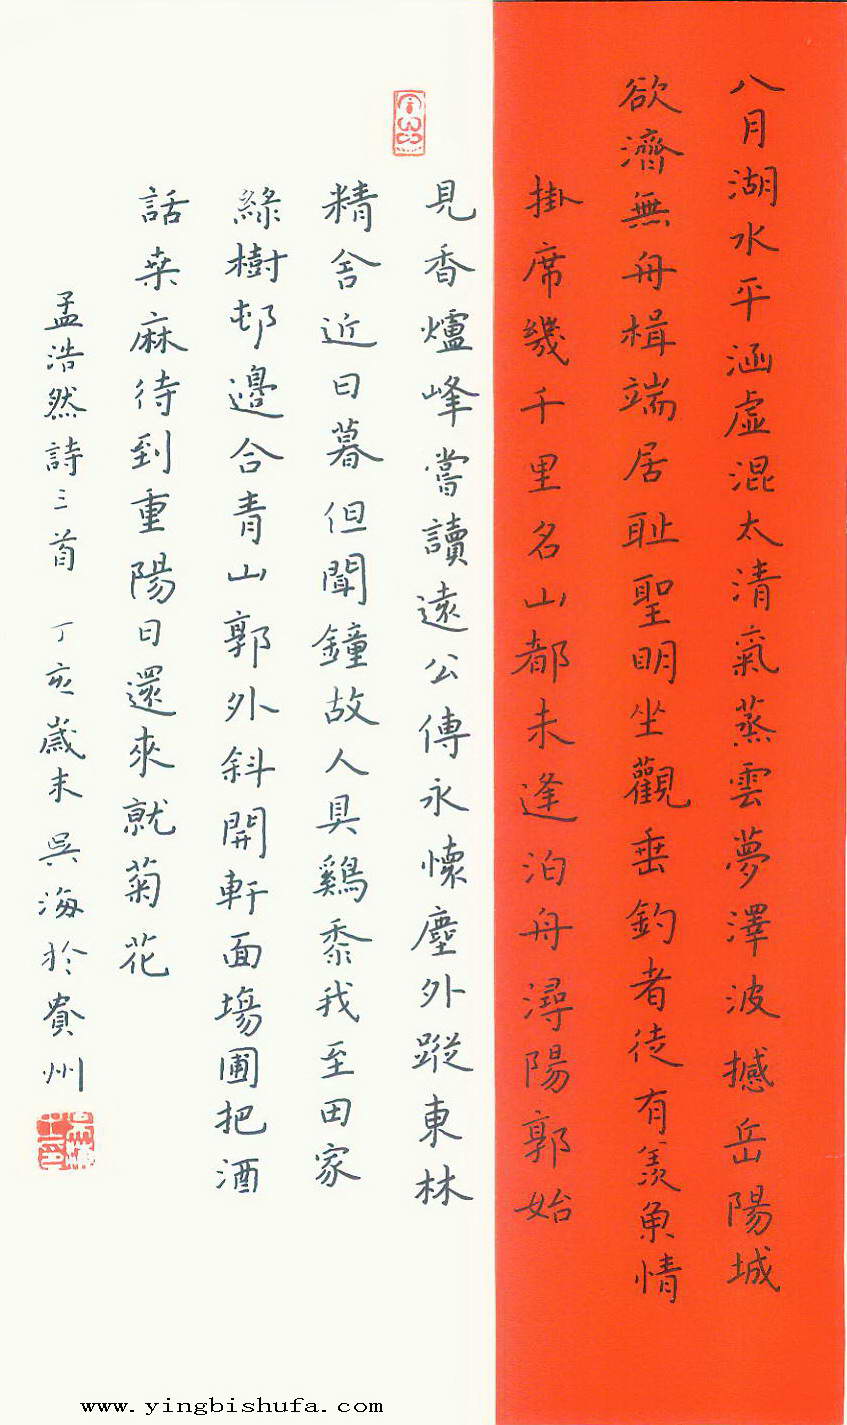 八月湖水平涵虛混太清氣蒸雲夢澤波撼岳陽城
欲濟無舟楫端居恥聖明坐觀垂釣者徒有羨魚情
掛席幾千里名山都未逢泊舟潯陽郭始
見香爐峰嘗讀遠公傳永懷塵外蹤東林
精舍近日暮但聞鐘故人具鷄黍我至田家
綠樹邨邊合青山郭外斜開軒面場圃把酒
話桑麻待到重陽日還來就菊花
孟浩然詩三首 丁亥歲末吳海於貴州
www.yingbishufa.com